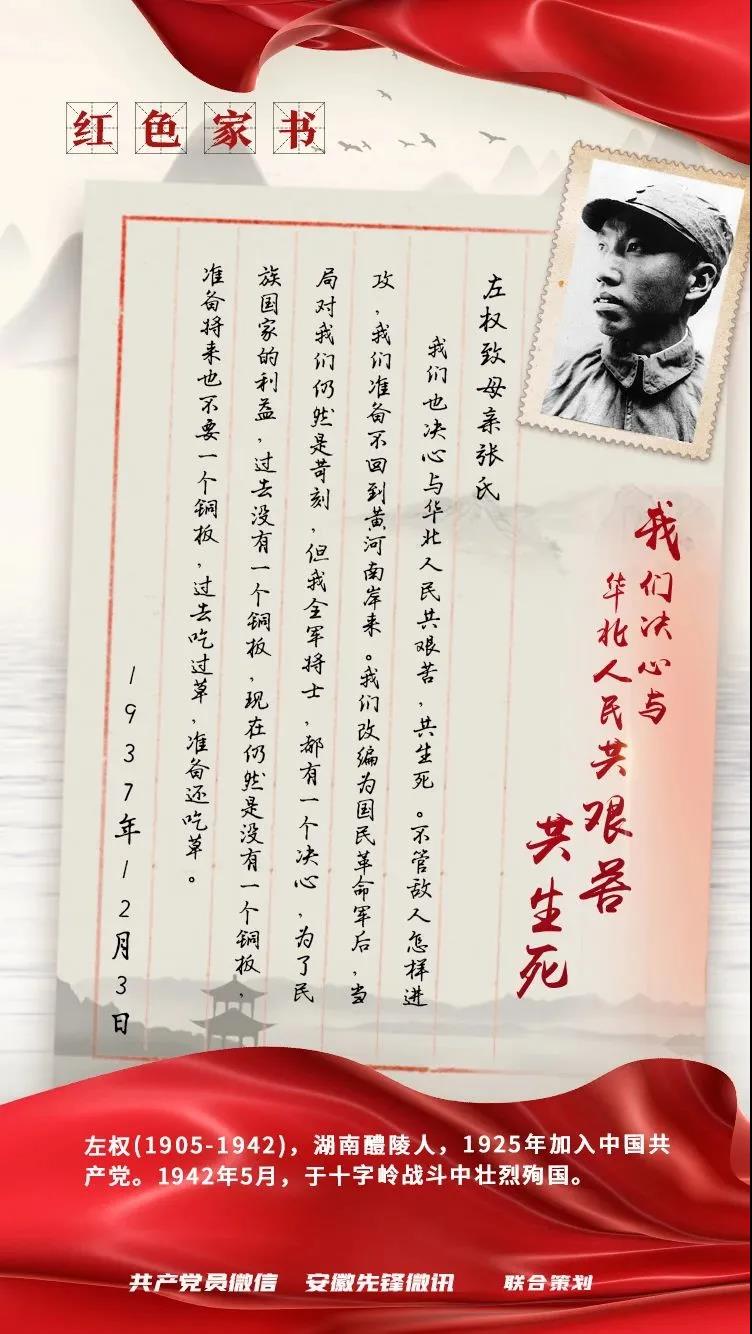 红色家书
我们决心与
华北人民共艰苦
共生死
左权致母亲张氏
我们也决心与华北人民共艰苦，共生死。不管敌人怎样进
攻，我们准备不回到黄河南岸来。我们改编为国民革命军后，当
局对我们仍然是苛刻，但我全军将士，都有一个决心，为了民
族国家的利益，过去没有一个铜板，现在仍然是没有一个铜板，
准备将来也不要一个铜板，过去吃过草，准备还吃草。
1937年12月3日
左权(1905-1942)，湖南醴陵人，1925年加入中国共
产党。1942年5月，于十字岭战斗中壮烈殉国。
共产党员微信 安徽先锋微讯 联合策划